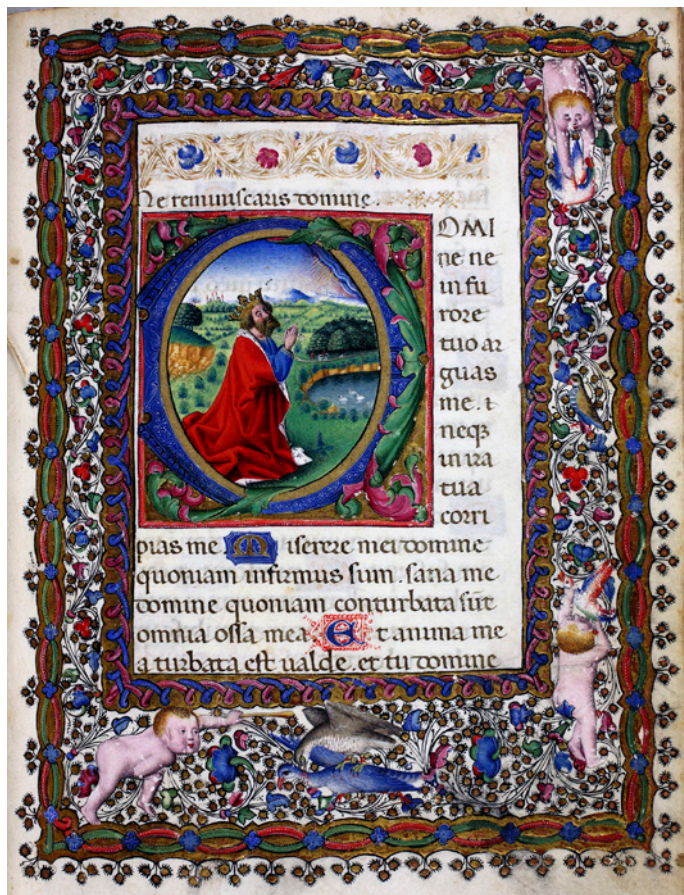 Ne reminiscaris domine.
DOMI
ne ne
in fu
rore
tuo ar
guas
me. &
neqȝ
in ira
tua
corri
pias me. Miserere mei domine
quoniam infirmus sum. sana me
domine quoniam conturbata sūt
omnia ossa mea Et anima me
a turbata est ualde. et tu domine